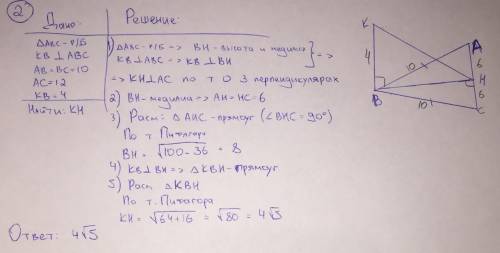 2
Дано:
ΔABC - р/б
KB ⊥ ABC
AB = BC = 10
AC = 12
KB = 4
Найти: KH
Решение:
1) ΔABC - р/б => BH - высота и медиана
KB ⊥ ABC => KB ⊥ BH } =>
=> KH ⊥ AC по т о 3 перпендикулярах
2) BH - медиана => AH = HC = 6
3) Расм: Δ BHC - прямоуг (∠BHC = 90°)
По т Пифагора
BH = √100-36 = 8
4) KB ⊥ BH => ΔKBH - прямоуг
5) Расм ΔKBH
По т. Пифагора
KH = √64+16 = √80 = 4√5
Ответ: 4√5
K
A
4
10
6
H
B
6
10
C